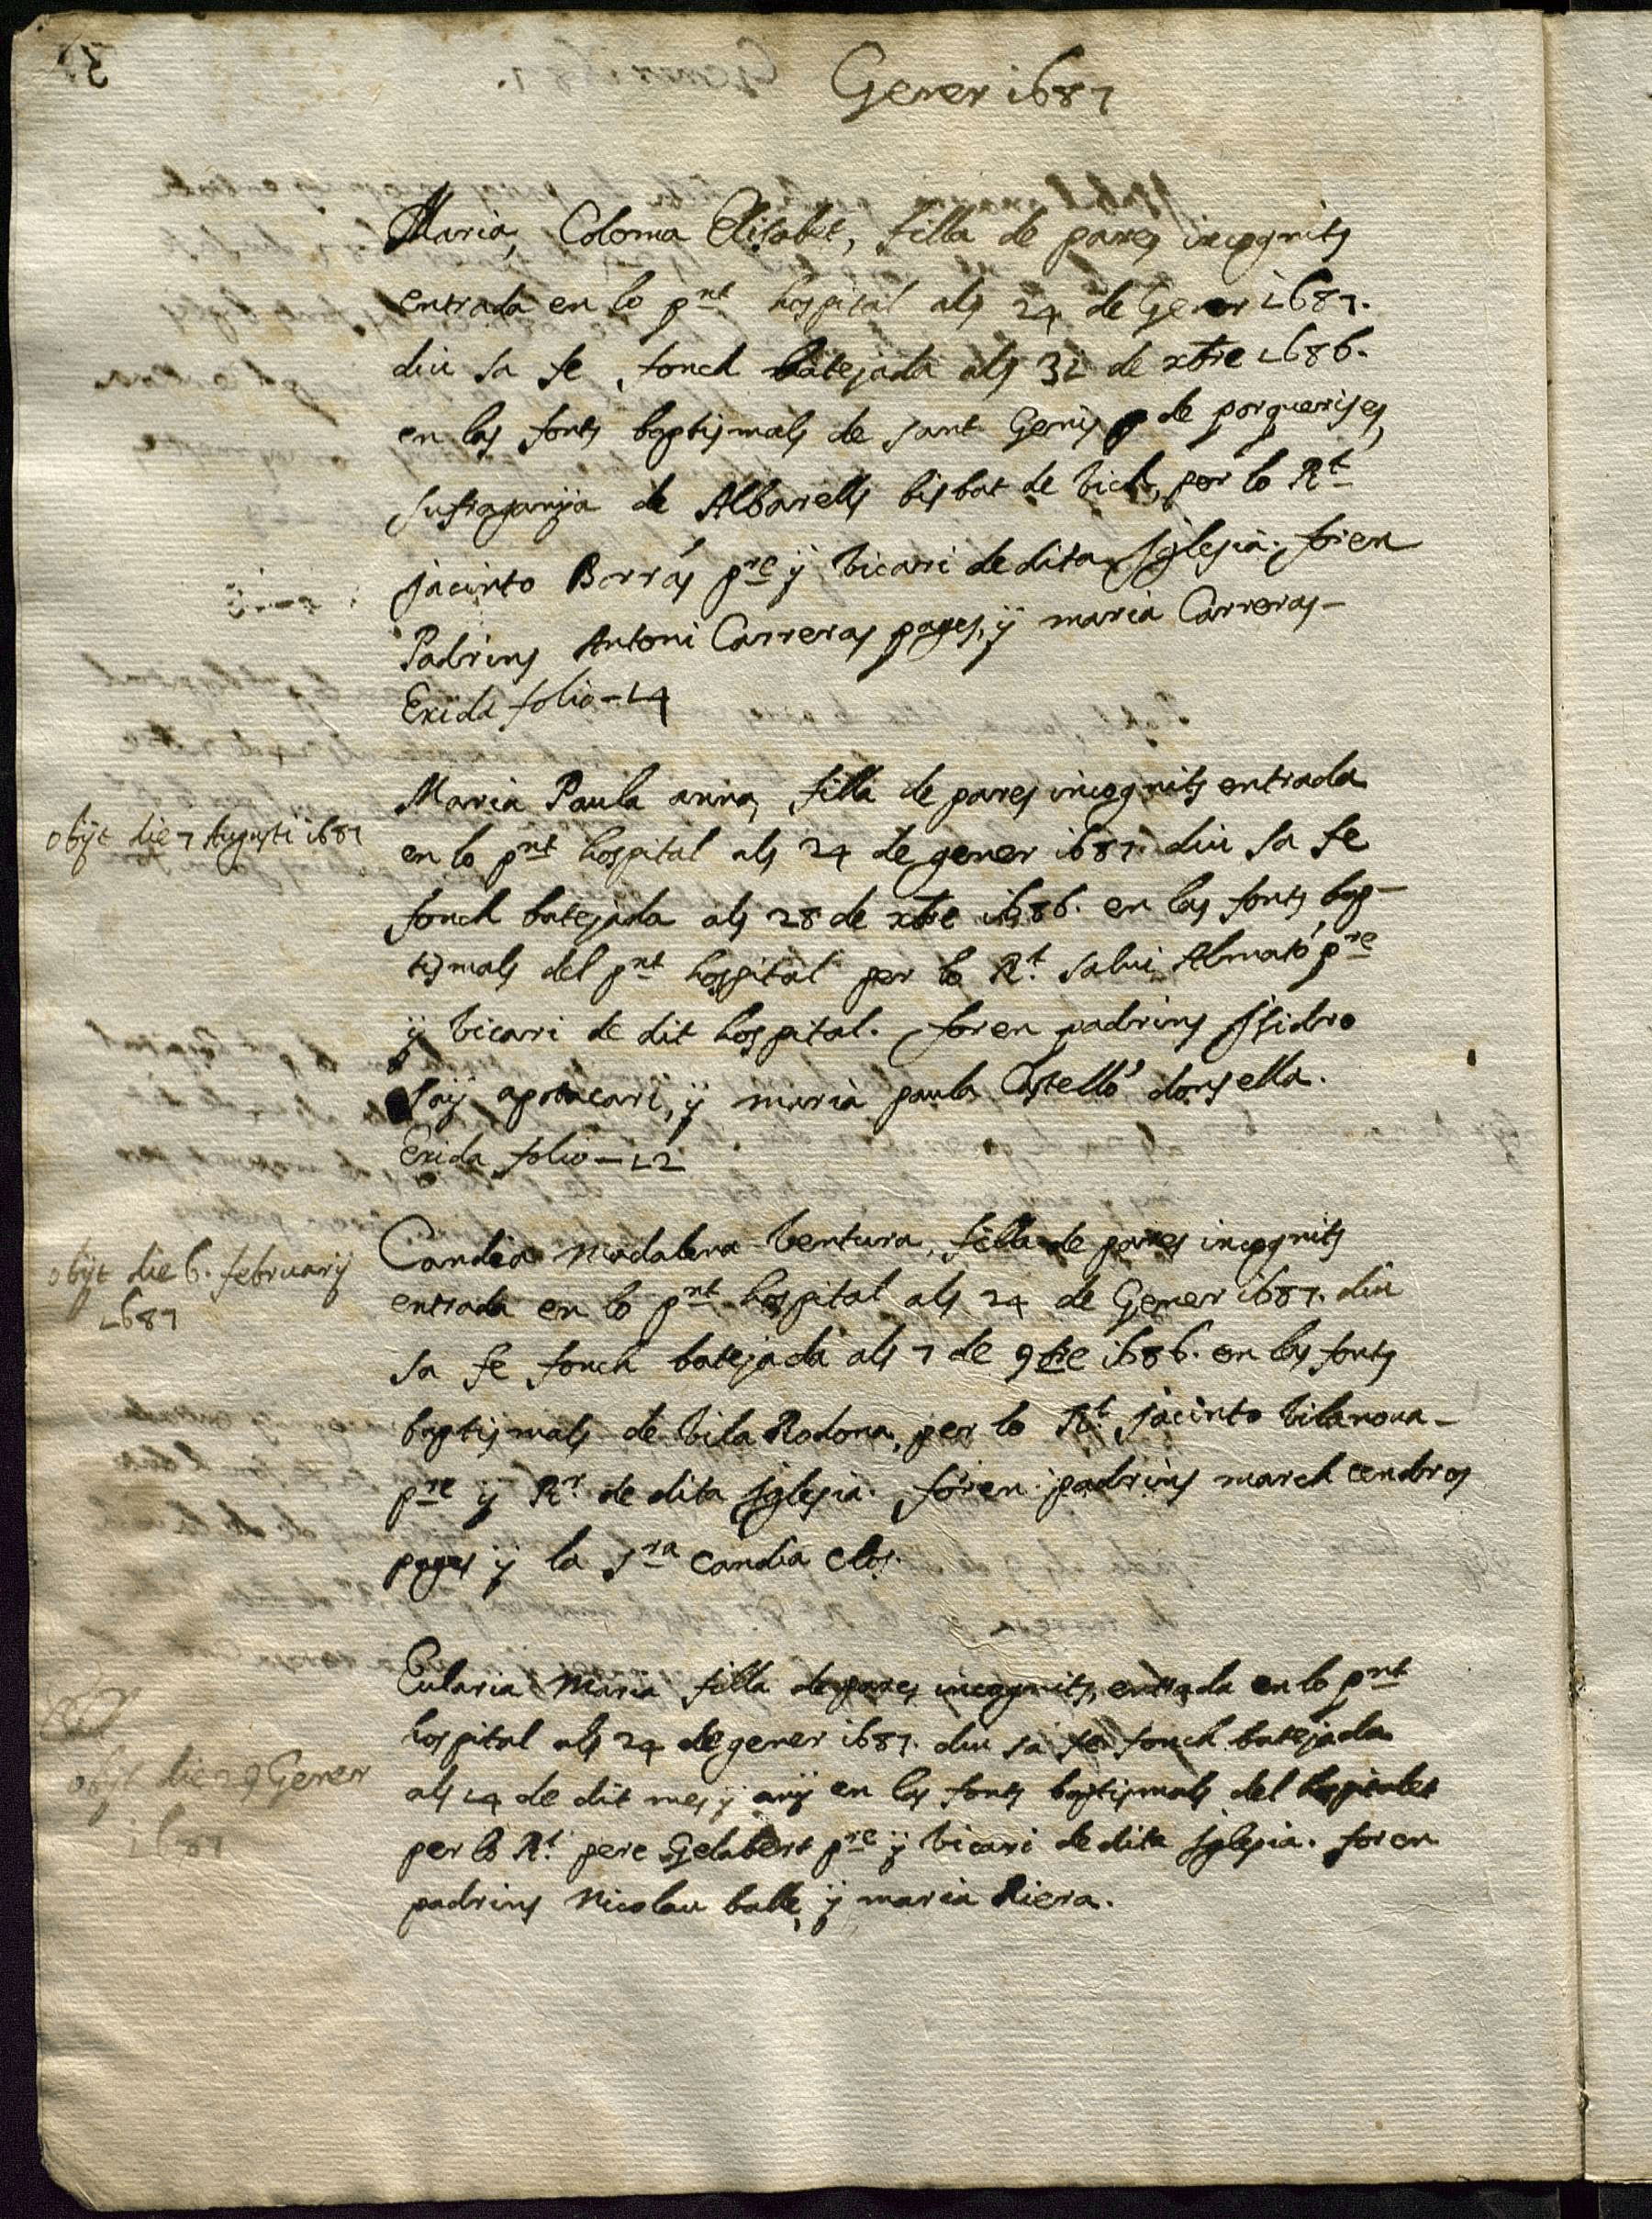 Gener 1687
Maria, Coloma Elisabet, filla de pares incognits
entrada en lo pnt hospital als 24 de Gener 1687.
diu sa fe, fonch batejada als 31 de xbre 1686.
en las fonts baptismals de sant Genis de porquerises,
sufraganya de Albarells bisbat de Vich, per lo Rt
Jacinto Borrás pre ÿ vicari de dita Iglesia. foren
Padrins Antoni Carreras pages, ÿ maria Carreras-
Exida folio-14
obijt die 7 Augusti 1687
Maria Paula anna, filla de pares incognits entrada
en lo pnt hospital als 24 de gener 1687. diu sa fe
fonch batejada als 28 de xbre 1686. en las fonts bap-
tismals del pnt hospital per lo Rt. Salvi Almató pre
ÿ vicari de dit hospital. foren padrins Isidro
saÿ apotacari, ÿ maria paula Castelló donsella.
Exida folio-12
obijt die 6. februarij
1687
Candia Madalena Ventura, filla de pares incognits
entrada en lo pnt hospital als 24 de Gener 1687. diu
sa fe fonch batejada als 7 de 9bre 1686. en las fonts
baptismals de Vila Rodona, per lo Rt. Jacinto Vilanova-
pre ÿ Rr. de dita Iglesia. foren padrins march cendros
pages ÿ la Sra Candia Clos.
obijt die 29 Gener
1687
Eularia Maria filla de pares incognits, entrada en lo pnt
hospital als 24 de gener 1687. diu sa fe fonch batejada
als 14 de dit mes ÿ anÿ en las fonts baptismals del
per lo Rt. pere Gelabert pre ÿ vicari de dita Iglesia. foren
padrins Nicolau balle ÿ maria Riera.